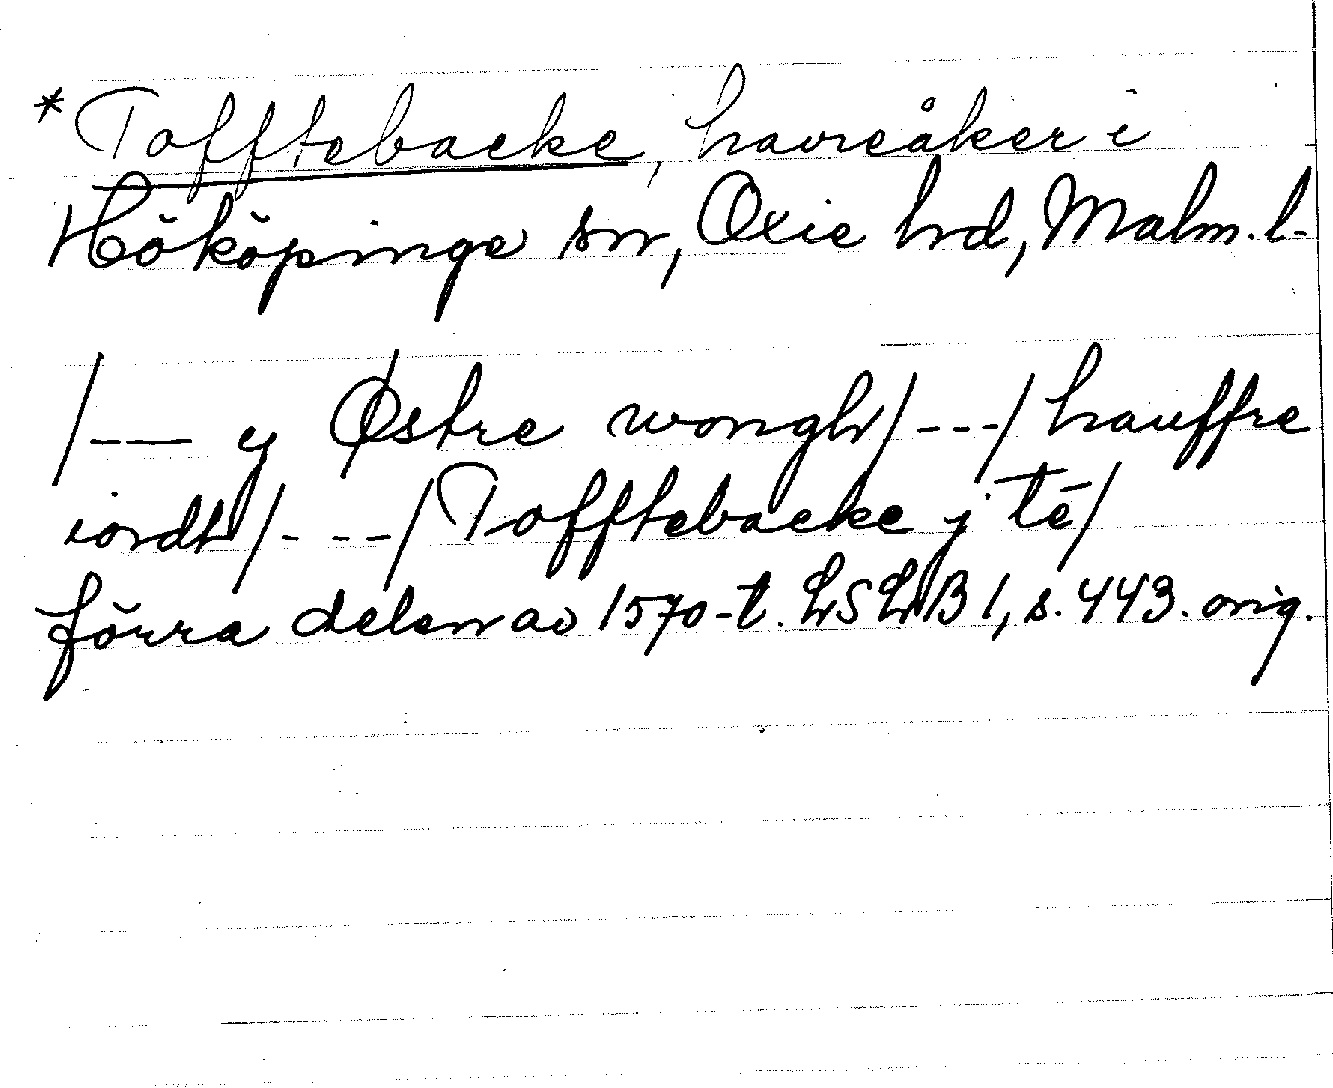 * Tofftebacke, havreåker i
Hököpinge sn, Oxie hd, Malm. l.
/--- y Østre wongh/---/ hauffre
iordh/----/Tofftebacke j tē/
förra delen av 1570-t. LSLB 1, s. 443. orig.